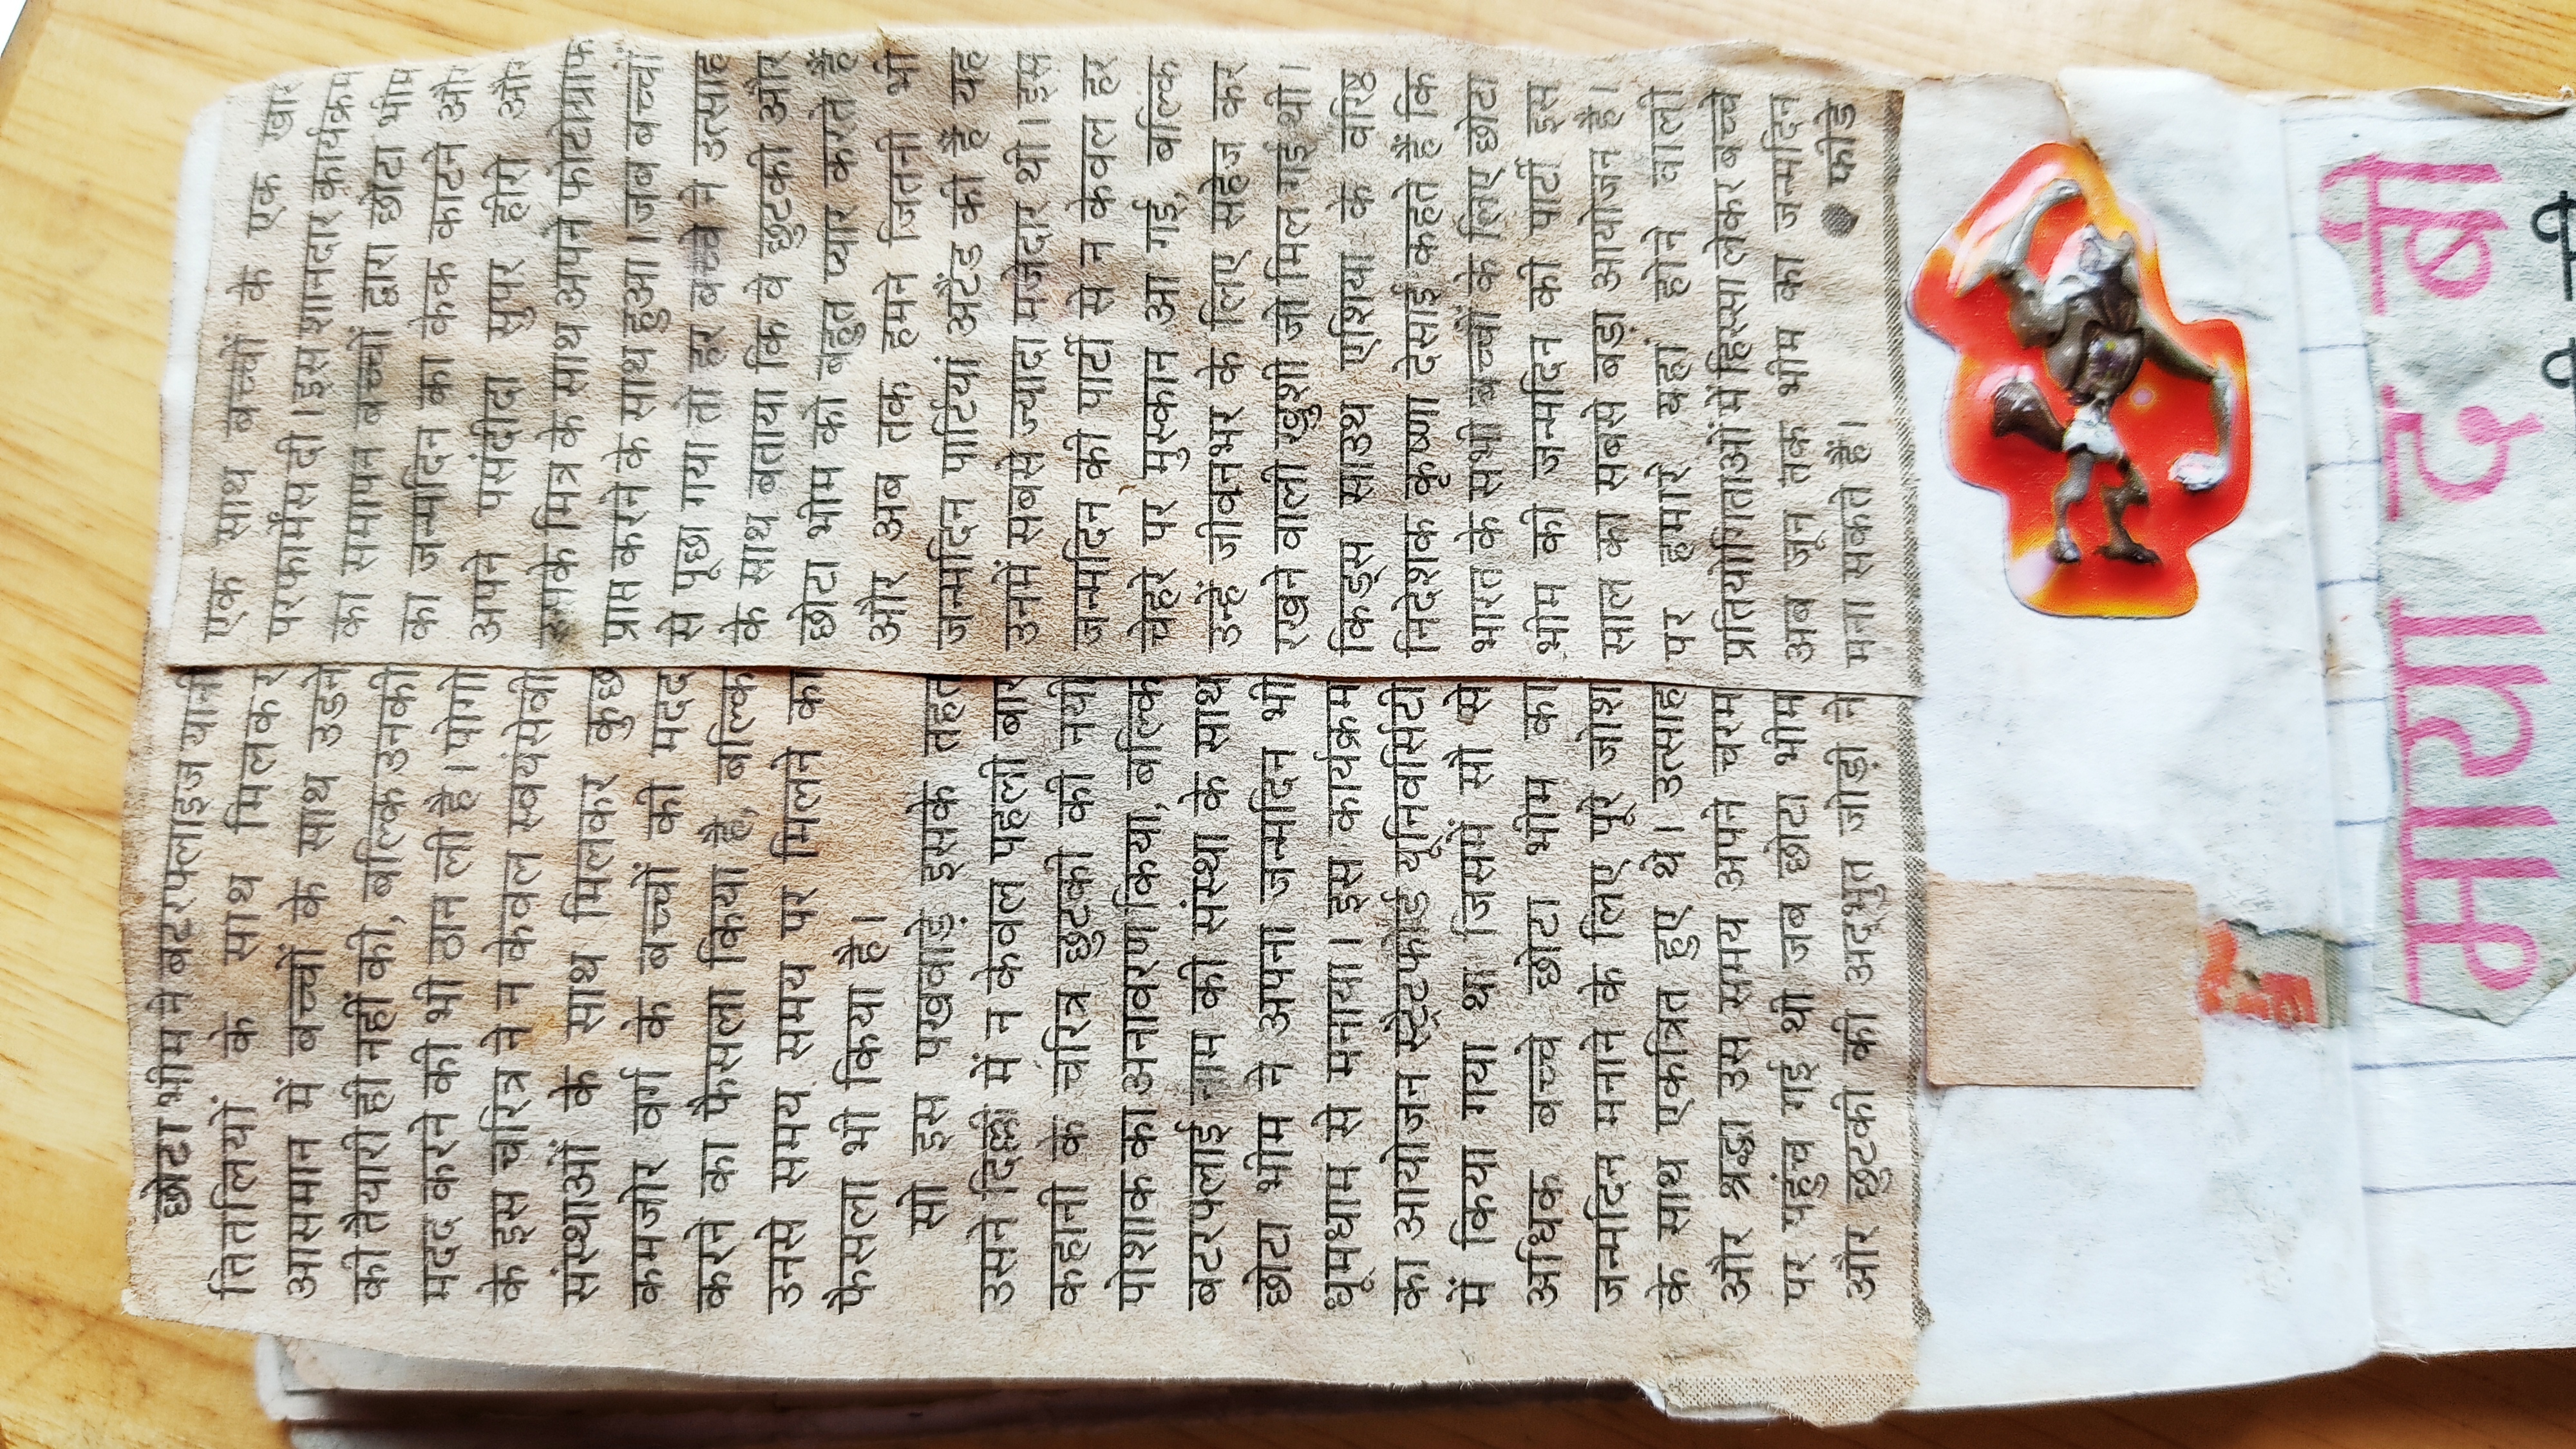 छोटा भीम ने बटरफ्लाइज यानी
तितलियों के साथ मिलकर
आसमान में बच्चों के साथ उड़ने
की तैयारी ही नहीं की, बल्कि उनकी
मदद करने की भी ठान ली है। पोगो
के इस चरित्र ने न केवल स्वयंसेवी
संस्थाओं के साथ मिलकर कुछ
कमजोर वर्ग के बच्चों की मदद
करने का फैसला किया है, बल्कि
उनसे समय समय पर मिलने का
फैसला भी किया है।
सो इस पखवाड़े इसके तहत
उसने दिल्ली में न केवल पहली बार
कहानी के चरित्र छुटकी की नयी
पोशाक का अनावरण किया, बल्कि
बटरफ्लाई नाम की संस्था के साथ
छोटा भीम ने अपना जन्मदिन भी
धूमधाम से मनाया। इस कार्यक्रम
का आयोजन स्ट्रेटफोर्ड यूनिवर्सिटी
में किया गया था जिसमें सौ से
अधिक बच्चे छोटा भीम का
जन्मदिन मनाने के लिए पूरे जोश
के साथ एकत्रित हुए थे। उत्साह
और श्रद्धा उस समय अपने चरम
पर पहुंच गई थी जब छोटा भीम
और छुटकी की अद्भुत जोड़ी ने
एक साथ बच्चों के एक
परफार्मेंस दी। इस शानदार कार्यक्रम
का समापन बच्चों द्वारा छोटा भीम
का जन्मदिन का केक काटने और
अपने पसंदीदा सुपर हीरो और
उसके मित्र के साथ अपने फोटोग्राफ
प्राप्त करने के साथ हुआ। जब बच्चों
से पूछा गया तो हर बच्चे ने उत्साह
के साथ बताया कि वे छुटकी और
छोटा भीम को बहुत प्यार करते हैं
और अब तक हमने जितनी भी
जन्मदिन पार्टियां अटैंड की हैं यह
उनमें सबसे ज्यादा मजेदार थी। इस
जन्मदिन की पार्टी से न केवल हर
चेहरे पर मुस्कान आ गई, बल्कि
उन्हें जीवनभर के लिए सहेज कर
रखने वाली खुशी जो मिल गई थी।
किड्स साउथ एशिया के वरिष्ठ
निदेशक कृष्णा देसाई कहते हैं कि
भारत के सभी बच्चों के लिए छोटा
भीम की जन्मदिन की पार्टी इस
साल का सबसे बड़ा आयोजन है।
पर हमारे यहां होने वाली
प्रतियोगिताओं में हिस्सा लेकर बच्चे
अब जून तक भीम का जन्मदिन
मना सकते हैं।
● फीडे